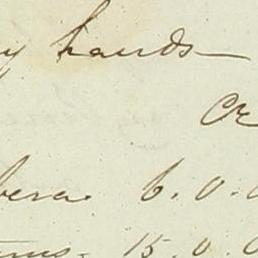 y hands
Cr
bera. 6. 0.
15. 0. 0